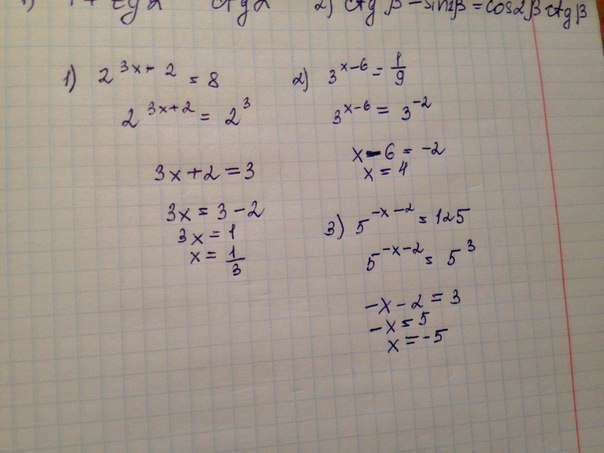 2) ctg β − sin2β = cos2β ctg β
1) 2^(3x+2) = 8
2^(3x+2) = 2^3
3x+2 = 3
3x = 3−2
3x = 1
x = 1/3
2) 3^(x−6) = 1/9
3^(x−6) = 3^(−2)
x−6 = −2
x = 4
3) 5^(−x−2) = 125
5^(−x−2) = 5^3
−x−2 = 3
−x = 5
x = −5